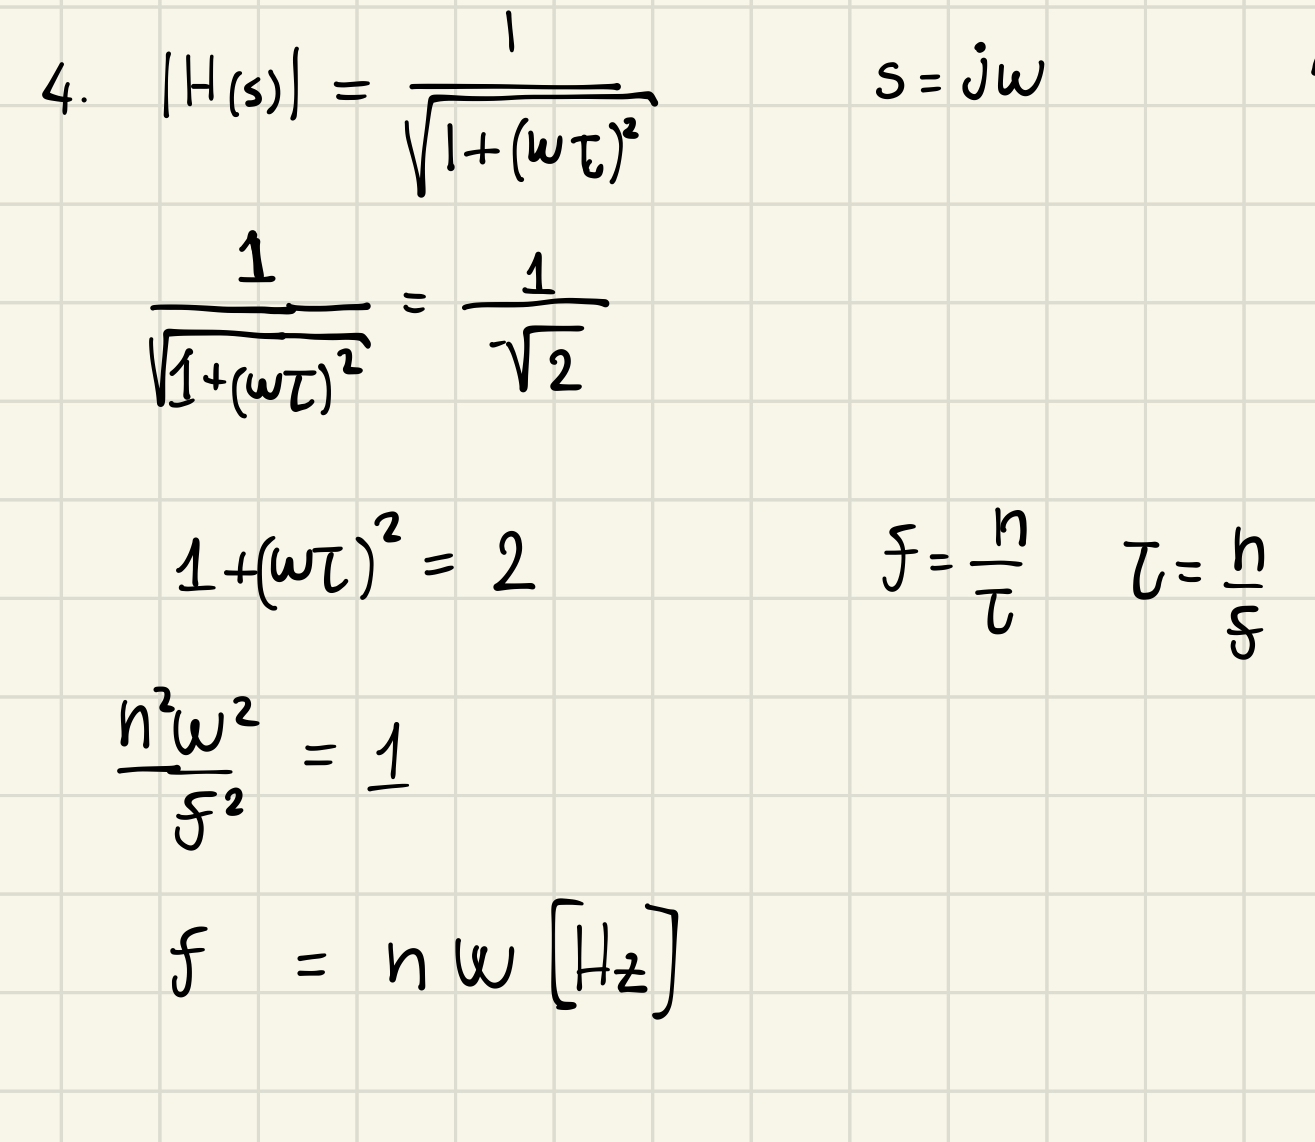 4. |H(s)| = 1/√(1+(ωτ)²) s = jω
1/√(1+(ωτ)²) = 1/√2
1+(ωτ)² = 2 f = n/τ τ = n/f
n²ω²/f² = 1
f = n ω [Hz]